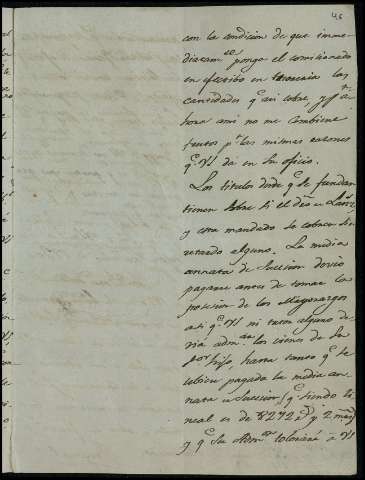 46
con la condicion de que inme-
diatam.te ponga el comisionado
en efectibo en tesoreria las
cantidades q.e asi cobre, y p.r a-
hora ami no me combiene
frutos p.r las mismas razones
q.e VS da en su oficio.
Los titulos desde q.e se fundan
tienen sobre si el dro de Lanz.s
y esta mandado se cobren sin
retardo alguno. La media
annata de Succesion devio
pagarse antes de tomar la
posesion de los Mayorazgos
asi q.e VS ni tutor alguno de-
via adm.rar los vienes de su
s.or hijo, hasta tanto q.e se
hubiese pagado la media an-
nata de Succesion, q.e siendo li-
neal es de 8272 r.s y 2 mrs
y q.e su Adm.or tolerará á VS